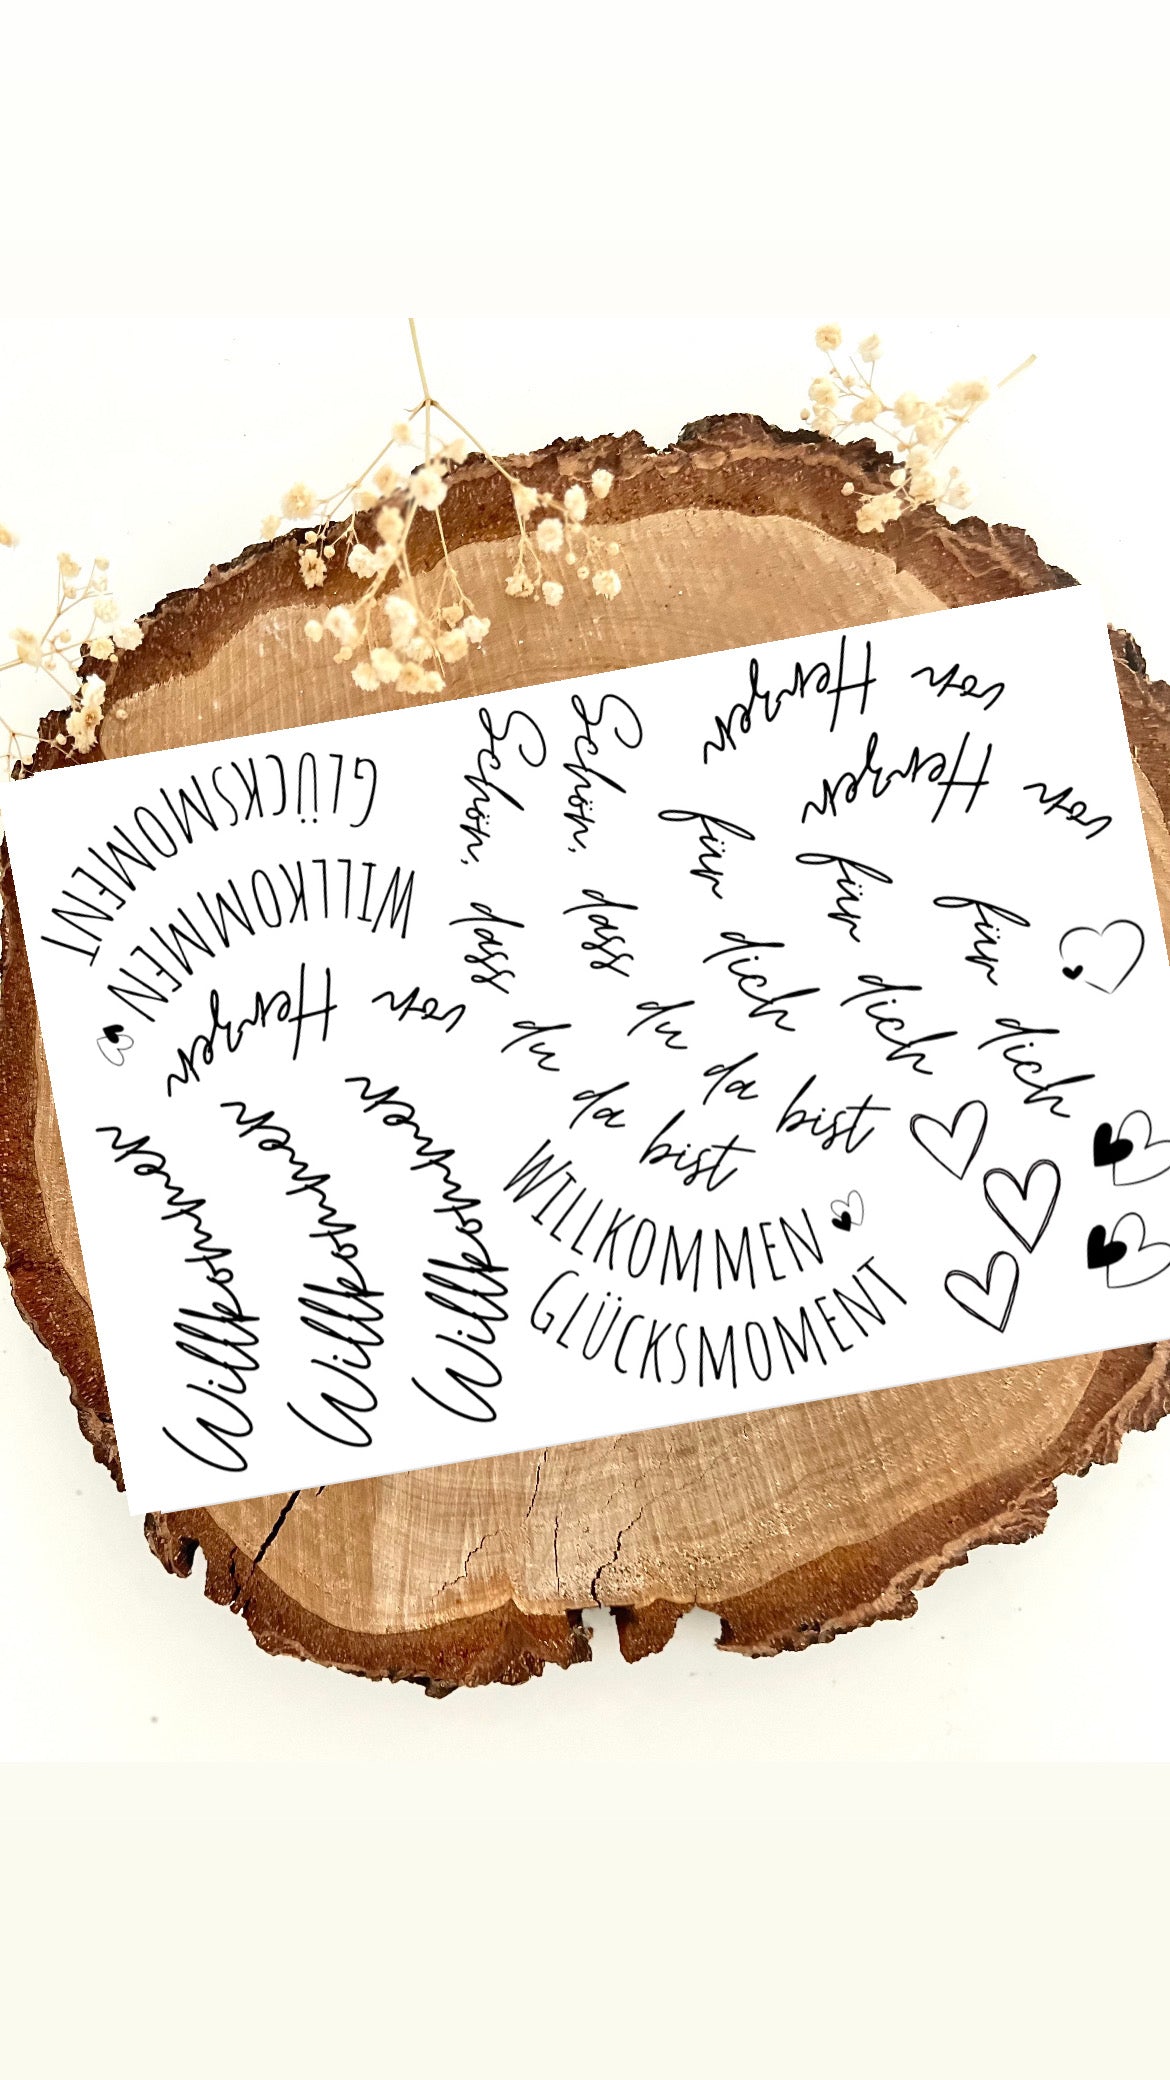 GLÜCKSMOMENT
WILLKOMMEN
von Herzen
Willkommen
Willkommen
Willkommen
Schön, dass du da bist
Schön, dass du da bist
von Herzen
von Herzen
für dich
für dich
für dich
WILLKOMMEN
GLÜCKSMOMENT